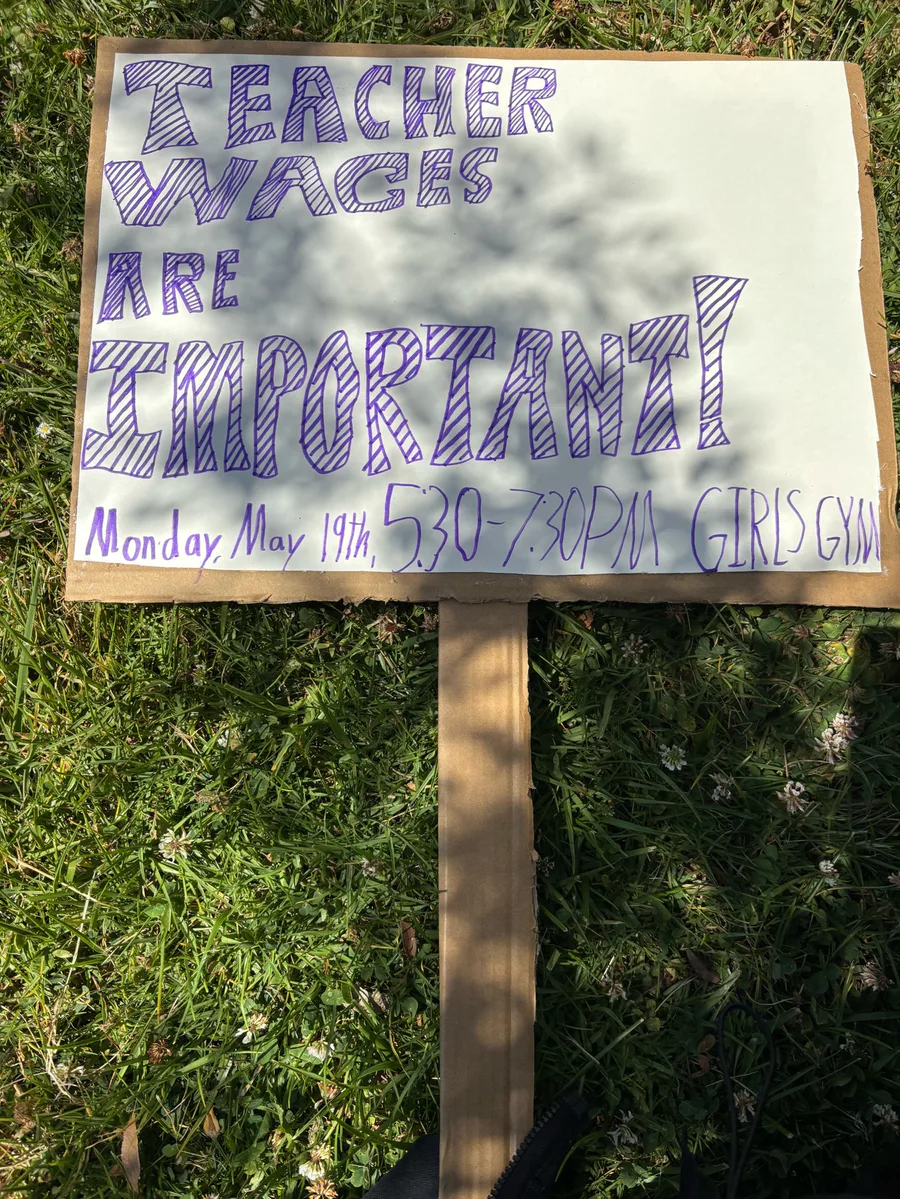 TEACHER
WAGES
ARE
IMPORTANT!
Monday, May 19th, 5:30-7:30PM GIRLS GYM